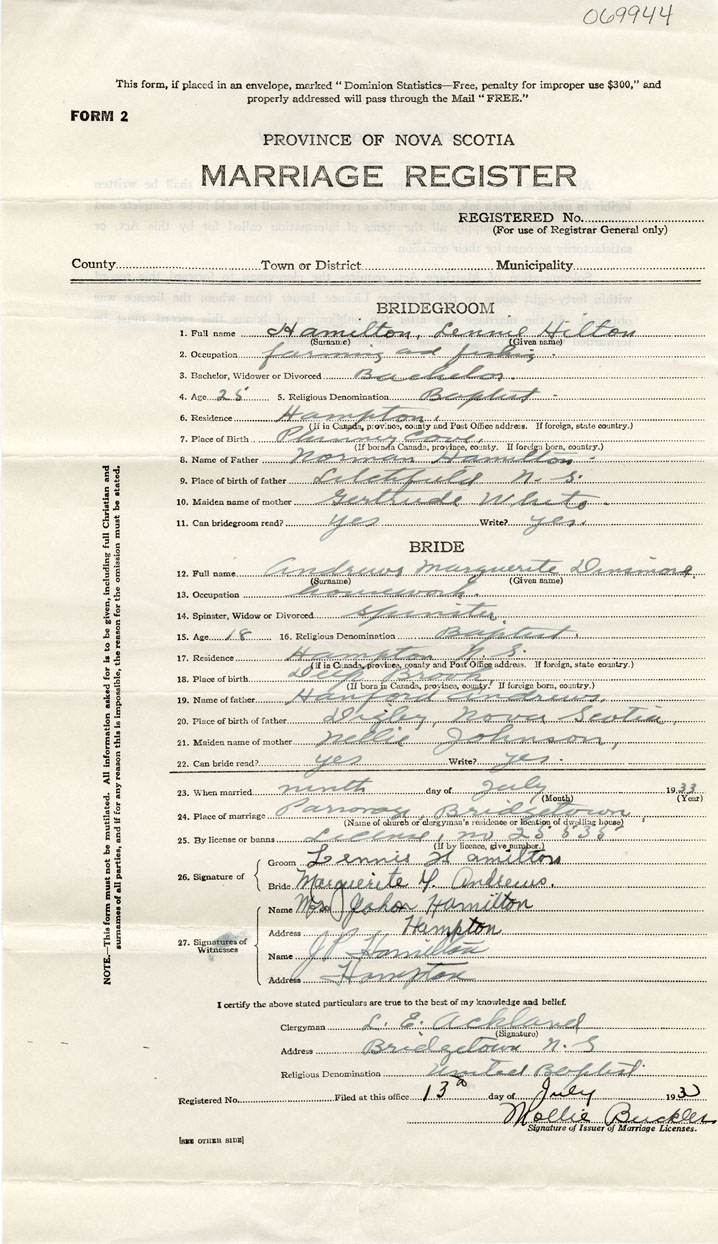 069944
This form, if placed in an envelope, marked "Dominion Statistics—Free, penalty for improper use $300," and
properly addressed will pass through the Mail "FREE."
FORM 2
PROVINCE OF NOVA SCOTIA
MARRIAGE REGISTER
REGISTERED No.
(For use of Registrar General only)
County Town or District Municipality
BRIDEGROOM
1. Full name Hamilton, Lennie Hilton
(Surname) (Given name)
2. Occupation farming and fishing
3. Bachelor, Widower or Divorced Bachelor
4. Age 25 5. Religious Denomination Baptist
6. Residence Hampton
(If in Canada, province, county and Post Office address. If foreign, state country.)
7. Place of Birth Cove
(If born in Canada, province, county. If foreign born, country.)
8. Name of Father Norman Hamilton
9. Place of birth of father Litchfield N. S.
10. Maiden name of mother Gertrude White
11. Can bridegroom read? yes Write? yes.
BRIDE
12. Full name Andrews Marguerite Dinsmore
(Surname) (Given name)
13. Occupation housework.
14. Spinster, Widow or Divorced Spinster
15. Age 18 16. Religious Denomination Baptist.
17. Residence Hampton N. S.
(If in Canada, province, county and Post Office address. If foreign, state country.)
18. Place of birth Deep Brook
(If born in Canada, province, county. If foreign born, country.)
19. Name of father Hanford Andrews,
20. Place of birth of father Digby, Nova Scotia,
21. Maiden name of mother Nellie Johnson,
22. Can bride read? yes Write? yes.
23. When married ninth day of July 1933
(Month) (Year)
24. Place of marriage Bridgetown
(Name of church or clergyman's residence or location of dwelling house)
25. By license or banns License, no
(If by licence, give number.)
26. Signature of Groom Lennie Hamilton
Bride Marguerite Andrews.
27. Signatures of Witnesses
Name Mrs Hamilton
Address Hampton
Name J P Hamilton
Address Hampton
NOTE.—This form must not be mutilated. All information asked for is to be given, including full Christian and
surnames of all parties, and if for any reason this is impossible, the reason for the omission must be stated.
I certify the above stated particulars are true to the best of my knowledge and belief.
Clergyman L. E. Ackland
(Signature)
Address Bridgetown N. S
Religious Denomination United Baptist
Registered No. Filed at this office 13 day of July 193
Mollie Buckler
Signature of Issuer of Marriage Licenses.
[SEE OTHER SIDE]